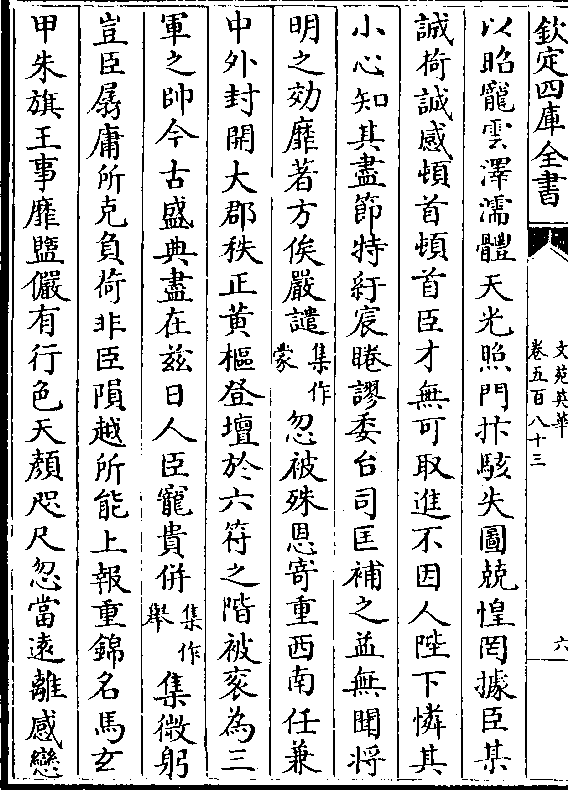 欽定四庫全書
文苑英華
卷五百八十三
六
以昭寵雲澤濡體天光照門抃駭失圖兢惶罔據臣某
誠荷誠感頓首頓首臣才無可取進不因人陛下憐其
小心知其盡節特紆宸睠謬委台司匡補之益無聞將
明之効靡著方俟嚴譴集作蒙忽被殊恩寄重西南任兼
中外封開大郡秩正黃樞登壇於六符之階被衮為三
軍之帥今古盛典盡在兹日人臣寵貴併集作舉集微躬
豈臣孱庸所克負荷非臣隕越所能上報重錦名馬玄
甲朱旗王事靡盬儼有行色天顏咫尺忽當遠離感戀